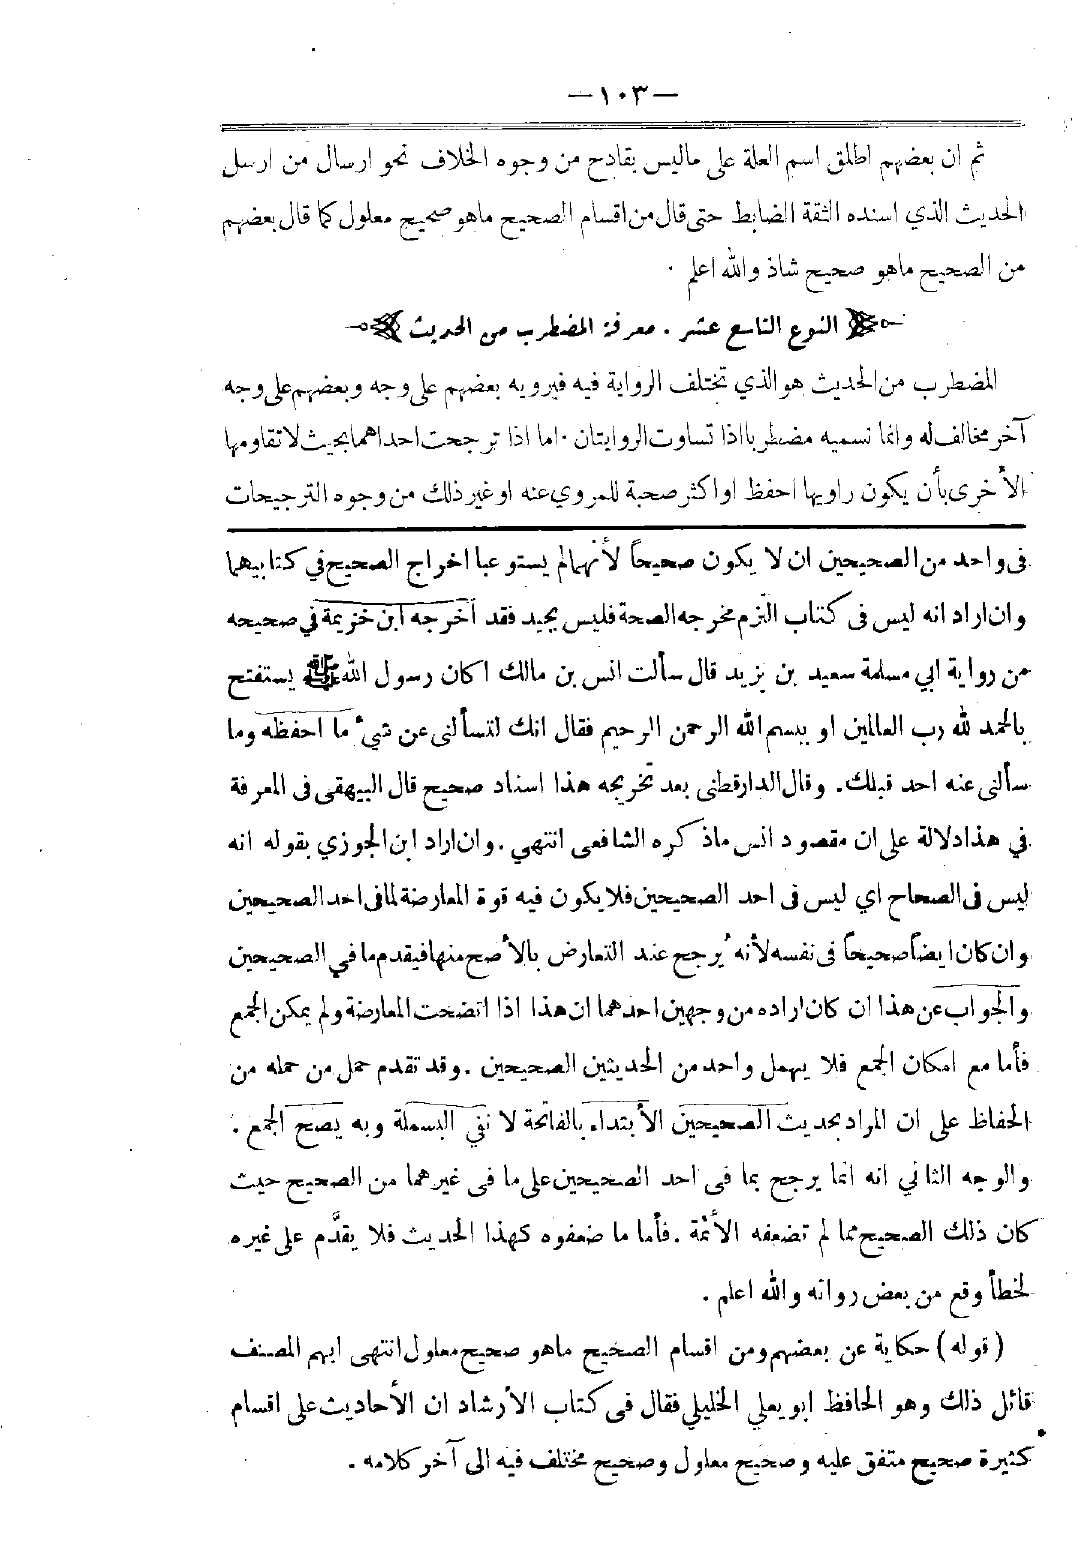 — ١٠٣ —
ثم ان بعضهم اطلق اسم العلة على ماليس بقادح من وجوه الخلاف نحو ارسال من ارسل
الحديث الذي اسنده الثقة الضابط حتى قال من اقسام الصحيح ماهو صحيح معلول كما قال بعضهم
من الصحيح ماهو صحيح شاذ والله اعلم ٠
النوع التاسع عشر . معرفة المضطرب من الحديث
المضطرب من الحديث هو الذي تختلف الرواية فيه فيرويه بعضهم على وجه وبعضهم على وجه
آخر مخالف له وانما نسميه مضطربا اذا تساوت الروايتان ٠ اما اذا ترجحت احداهما بحيث لا تقاومها
الأخرى بأن يكون راويها احفظ او اكثر صحبة للمروي عنه او غير ذلك من وجوه الترجيحات
فى واحد من الصحيحين ان لا يكون صحيحاً لأنهما لم يستوعبا اخراج الصحيح في كتابيهما
وان اراد انه ليس فى كتاب التزم مخرجه الصحة فليس بجيد فقد أخرجه ابن خزيمة في صحيحه
من رواية ابي مسلمة سعيد بن يزيد قال سألت انس بن مالك اكان رسول الله ﷺ يستفتح
بالحمد لله رب العالمين او ببسم الله الرحمن الرحيم فقال انك لتسألنى عن شيء ما احفظه وما
سألنى عنه احد قبلك. وقال الدارقطنى بعد تخريجه هذا اسناد صحيح قال البيهقى فى المعرفة
في هذا دلالة على ان مقصود انس ماذكره الشافعى انتهي . وان اراد ابن الجوزي بقوله انه
ليس فى الصحاح اي ليس فى احد الصحيحين فلا يكون فيه قوة المعارضة لما فى احد الصحيحين
وان كان ايضاً صحيحاً فى نفسه لأنه يُرجح عند التعارض بالأصح منها فيقدم ما في الصحيحين
والجواب عن هذا ان كان اراده من وجهين احدهما ان هذا اذا اتضحت المعارضة ولم يمكن الجمع
فأما مع امكان الجمع فلا يهمل واحد من الحديثين الصحيحين . وقد تقدم حمل من حمله من
الحفاظ على ان المراد بحديث الصحيحين الأبتداء بالفاتحة لا نفي البسملة وبه يصح الجمع .
والوجه الثاني انه انما يرجح بما فى احد الصحيحين على ما فى غيرهما من الصحيح حيث
كان ذلك الصحيح مما لم تضعفه الأئمة . فأما ما ضعفوه كهذا الحديث فلا يقدَّم على غيره
لخطأ وقع من بعض رواته والله اعلم .
(قوله) حكاية عن بعضهم ومن اقسام الصحيح ماهو صحيح معلول انتهى ابهم المصنف
قائل ذلك وهو الحافظ ابو يعلي الخليلي فقال فى كتاب الأرشاد ان الأحاديث على اقسام
كثيرة صحيح متفق عليه وصحيح معلول وصحيح مختلف فيه الى آخر كلامه .